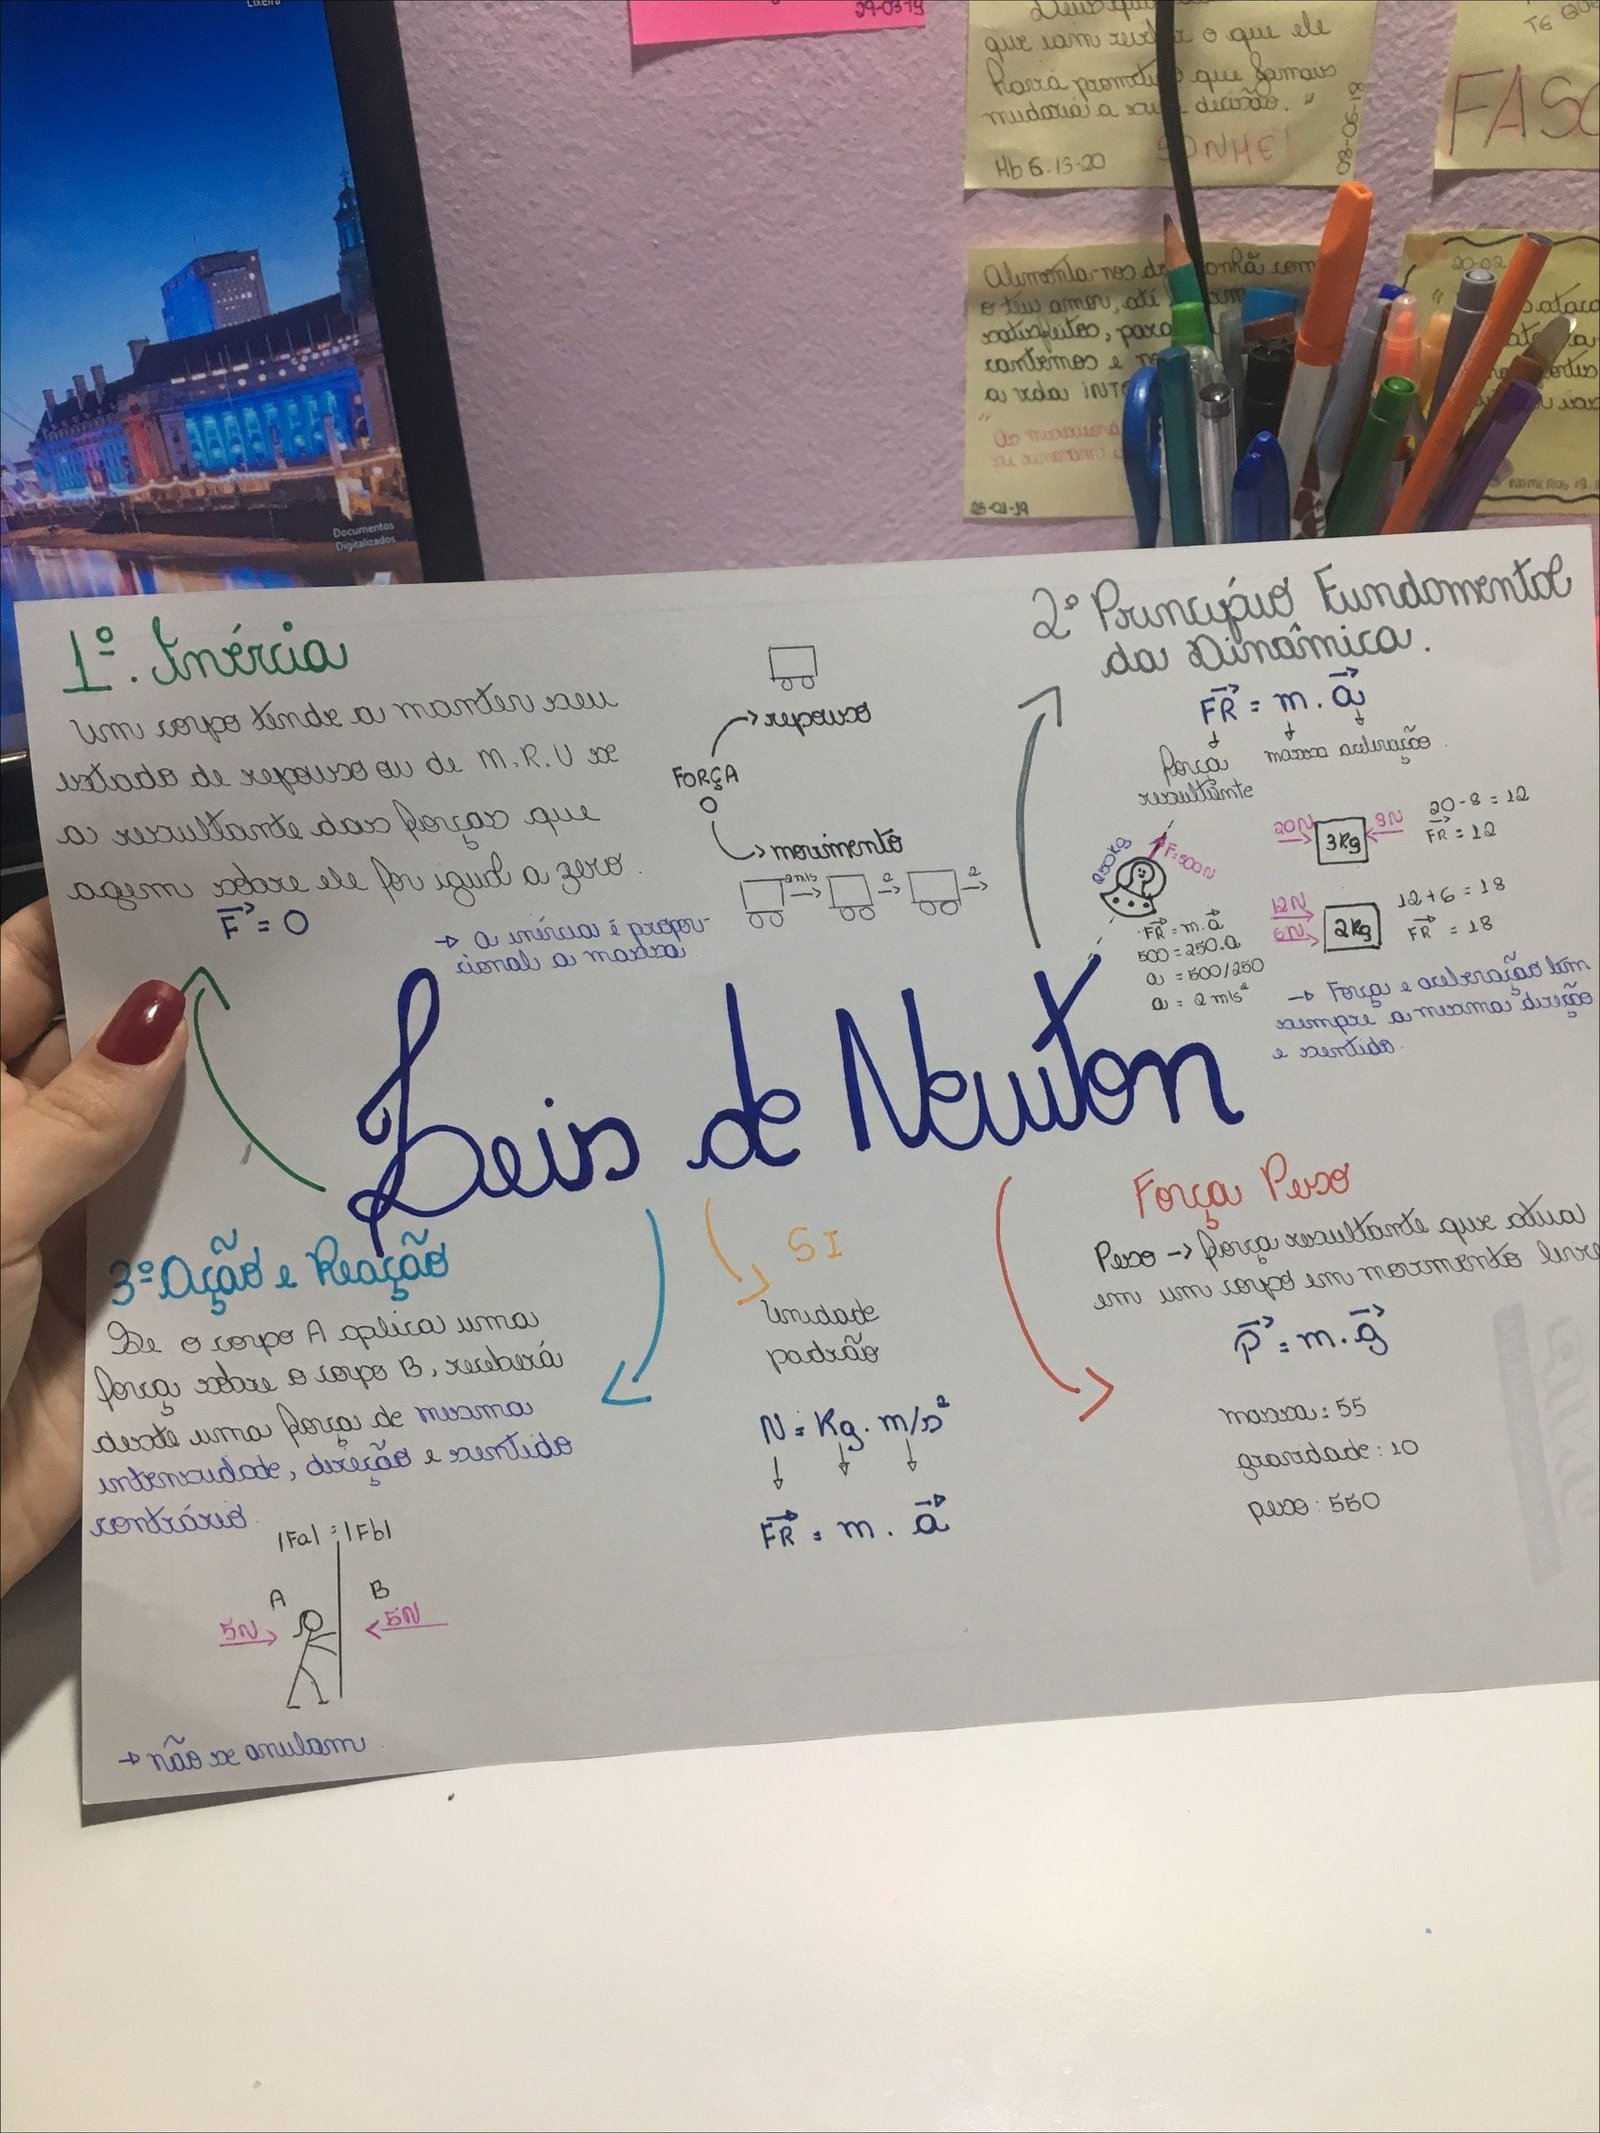 Lixeira
Documentos
Digitalizados
29-03-19
que iam receber o que ele
havia prometido que jamais
mudaria a sua decisão. "
SONHE!
Hb 6.13-20
08-06-19
TE
FASC
Alimenta-nos de manhã com
o teu amor, até
satisfeitos, para
cantemos e
a vida INT
25-01-19
20-02
1º. Inércia
Um corpo tende a manter seu
estado de repouso ou de M.R.U se
a resultante das forças que
agem sobre ele for igual a zero.
F = 0
→ a inércia é propor-
cional a massa
repouso
FORÇA
0
movimento
2m/s 2 2
2º Princípio Fundamental
da Dinâmica.
FR = m . a
força massa aceleração.
resultante
250Kg
F=500N
FR = m.a
500 = 250.a
a = 500/250
a = 2 m/s²
20N 3Kg 8N 20-8 = 12
FR = 12
12N 12+6 = 18
6N 2Kg FR = 18
→ Força e aceleração tem
sempre a mesma direção
e sentido.
Leis de Newton
3º Ação e Reação
Se o corpo A aplica uma
força sobre o corpo B, receberá
deste uma força de mesma
intensidade, direção e sentido
contrário.
|Fa| = |Fb|
A B
5N 5N
→ não se anulam.
SI
Unidade
padrão
N = Kg . m/s²
FR = m . a
Força Peso
Peso → força resultante que atua
em um corpo em movimento livre
P = m . g
massa: 55
gravidade: 10
peso: 550